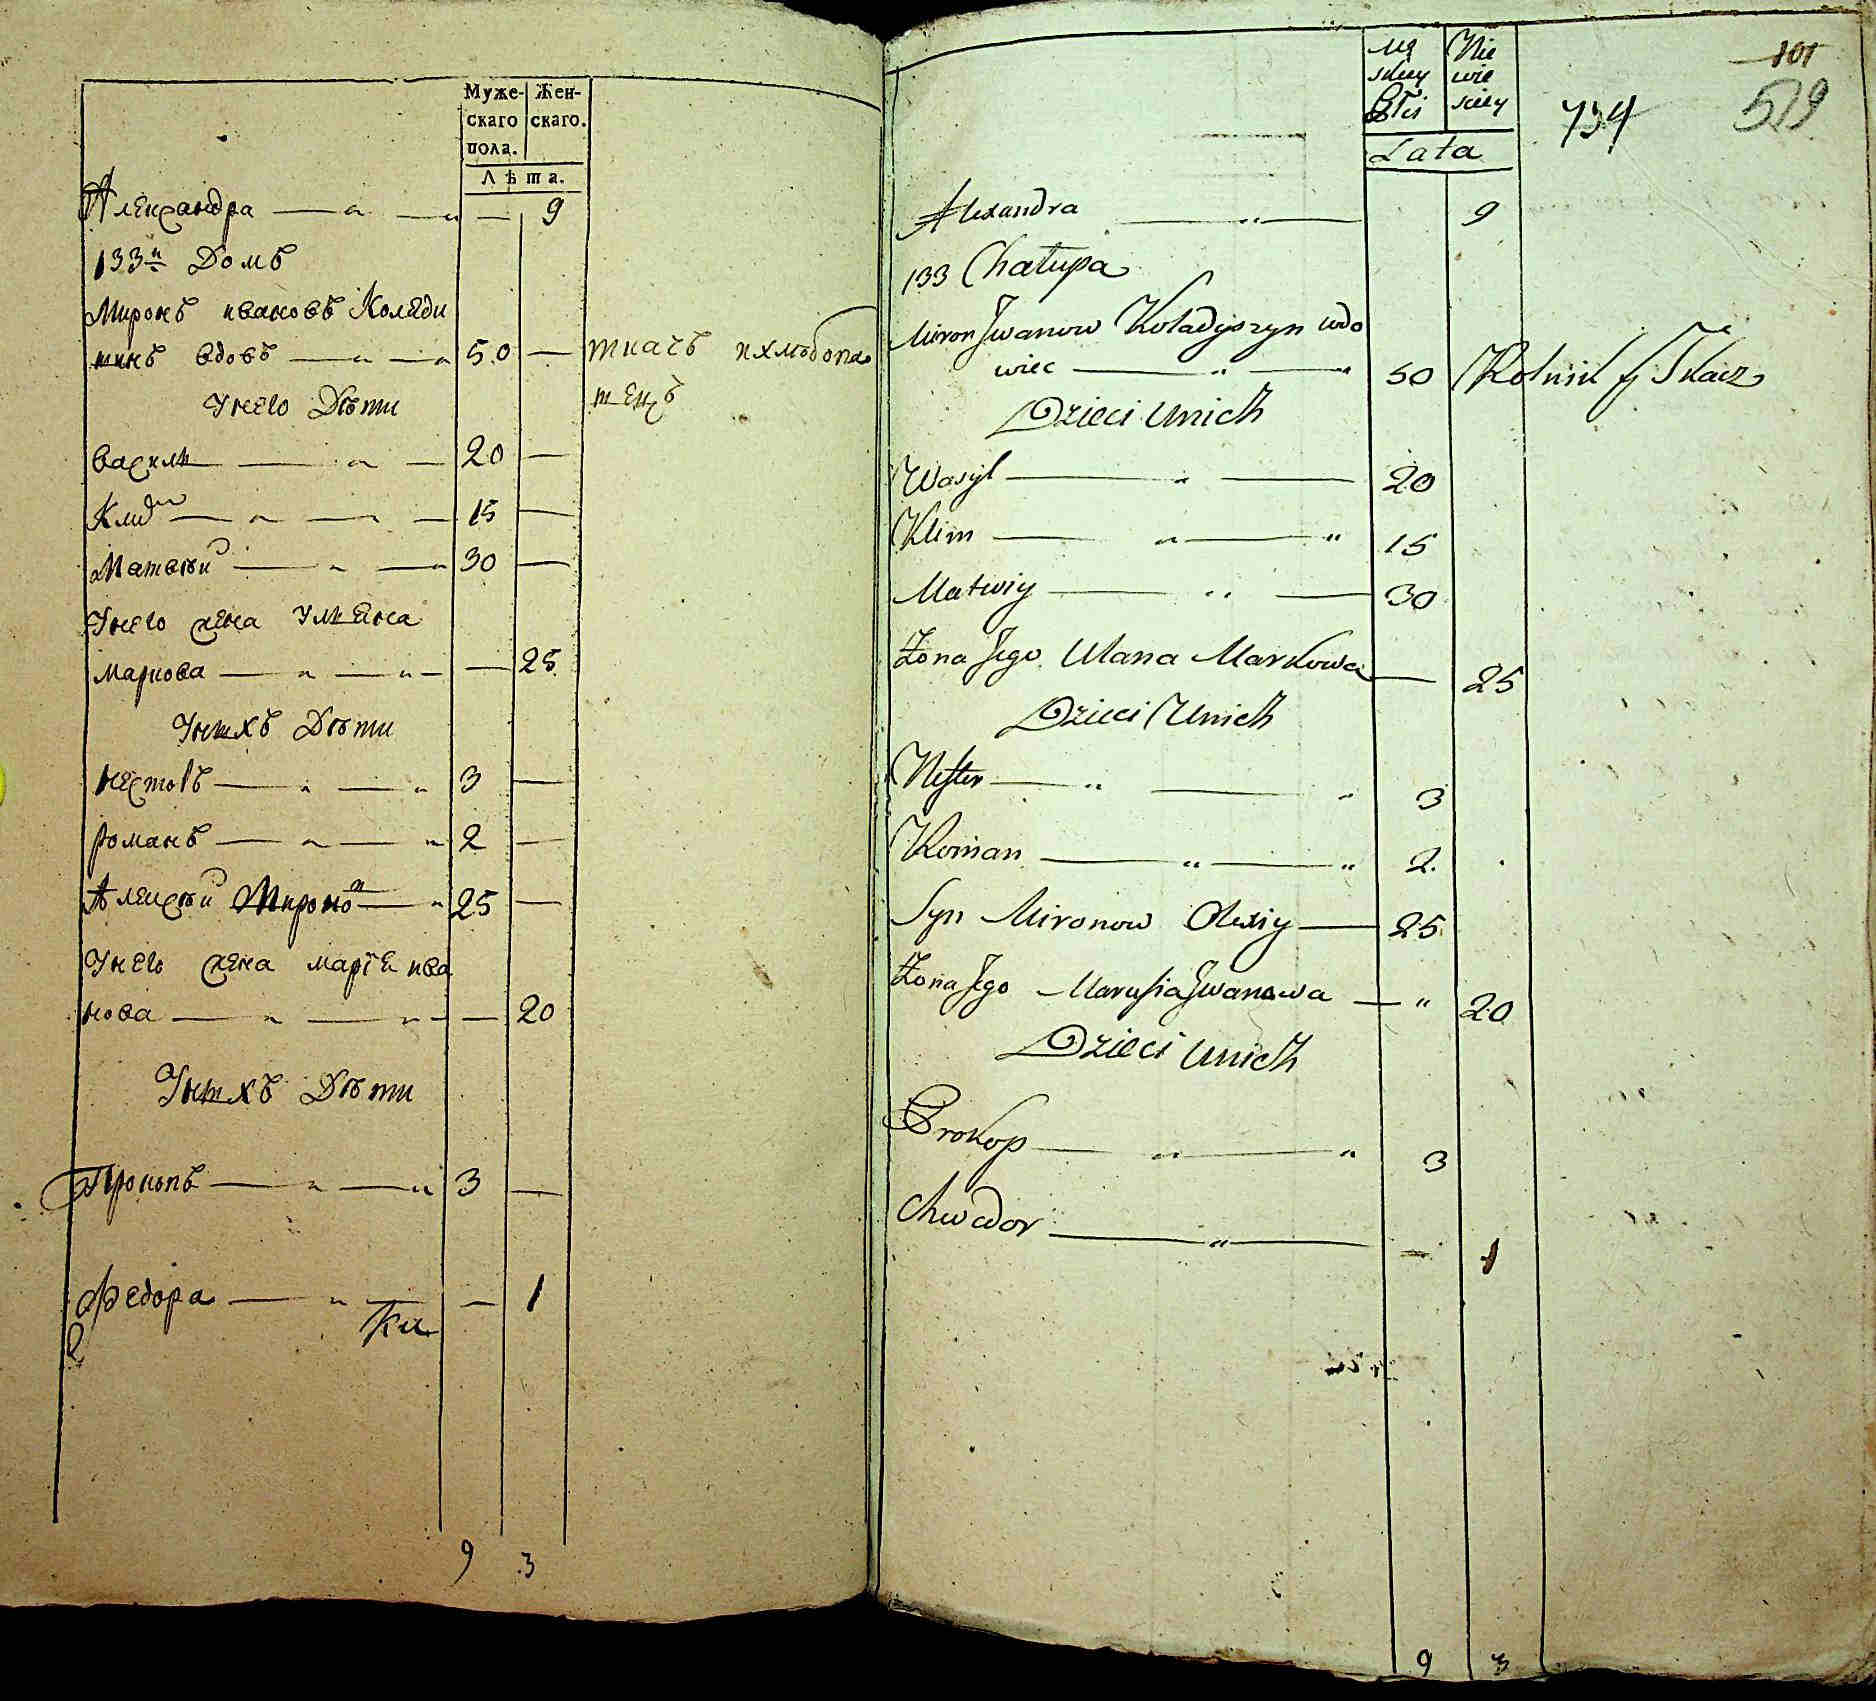 Муже- Жен-
скаго скаго.
пола.
Лѣта.
Александра — „ — „ — 9
133й Домъ
Миронъ ивановъ Коляди
шинъ вдовъ — „ — „ 50 — ткачъ ихлѣбопа
шецъ
Унего Дѣти
василь — „ — 20 —
Клим — „ — „ — 15 —
Матвѣй — „ — „ 30 —
Унего жена Ульяна
маркова — „ — „ — — 25
Унихъ Дѣти
несторъ — „ — „ 3 —
романъ — „ — „ 2 —
Алексѣй Миронов — „ 25 —
Унего жена ива
нова — „ — „ — — 20
Унихъ Дѣти
Прокопъ — „ — „ 3 —
Федора — „ — — 1
9 3
101
519
734
Mę Nie
skiey wie
Płci skiey
Lata
Alexandra — „ — 9
133 Chałupa
Miron Jwanow Koladyszyn wdo
wiec — „ — „ 50 Rolnik y Tkacz
Dzieci Unich
Wasyl — „ — 20
Klim — „ — „ 15
Matwiy — „ — 30
Żona Jego Ulana Markowa — 25
Dzieci Unich
Nester — „ — „ 3
Roman — „ — „ 2.
Syn Mironow Olexiy — 25
Żona Jego Marusia Jwanowa — „ 20
Dzieci Unich
Prokop — „ — „ 3
Chwedor — „ — - 1
9 3